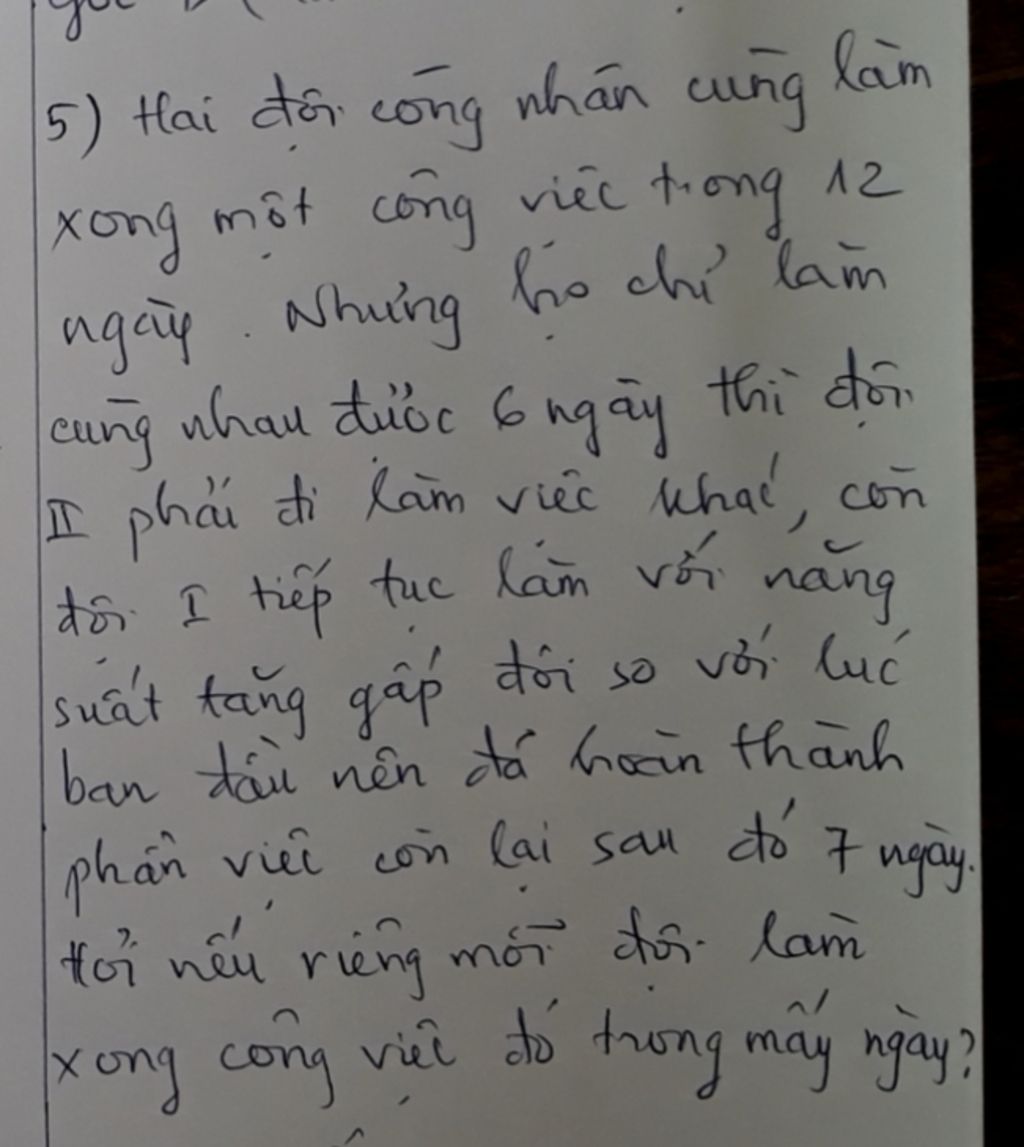 5) Hai đội công nhân cùng làm
xong một công việc trong 12
ngày. Nhưng họ chỉ làm
cùng nhau được 6 ngày thì đội
II phải đi làm việc khác, còn
đội I tiếp tục làm với năng
suất tăng gấp đôi so với lúc
ban đầu nên đã hoàn thành
phần việc còn lại sau đó 7 ngày.
Hỏi nếu riêng mỗi đội làm
xong công việc đó trong mấy ngày?